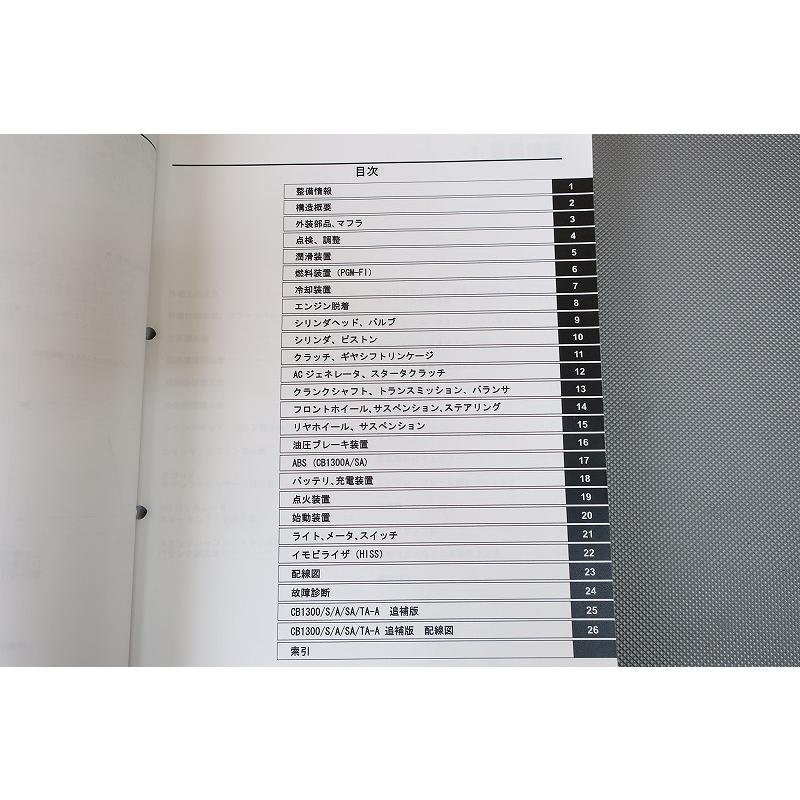 目次
整備情報 1
構造概要 2
外装部品、マフラ 3
点検、調整 4
潤滑装置 5
燃料装置 (PGM-FI) 6
冷却装置 7
エンジン脱着 8
シリンダヘッド、バルブ 9
シリンダ、ピストン 10
クラッチ、ギヤシフトリンケージ 11
ACジェネレータ、スタータクラッチ 12
クランクシャフト、トランスミッション、バランサ 13
フロントホイール、サスペンション、ステアリング 14
リヤホイール、サスペンション 15
油圧ブレーキ装置 16
ABS (CB1300A/SA) 17
バッテリ、充電装置 18
点火装置 19
始動装置 20
ライト、メータ、スイッチ 21
イモビライザ (HISS) 22
配線図 23
故障診断 24
CB1300/S/A/SA/TA-A 追補版 25
CB1300/S/A/SA/TA-A 追補版 配線図 26
索引